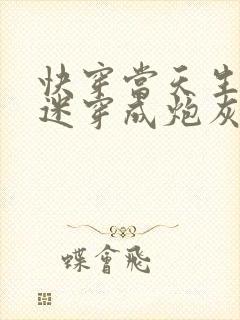 快穿當天生
迷穿成炮灰
蝶會飛